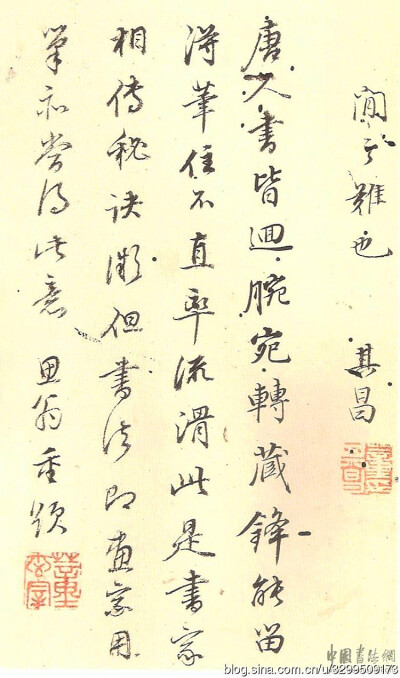 聞之難也 其昌
唐人書皆迴腕宛轉藏鋒能留
得筆住不直率流滑此是書家
相傳秘訣微但書法即畫家用
筆亦當得此意 思翁重題
中國書法網
blog.sina.com.cn/u/3299509173